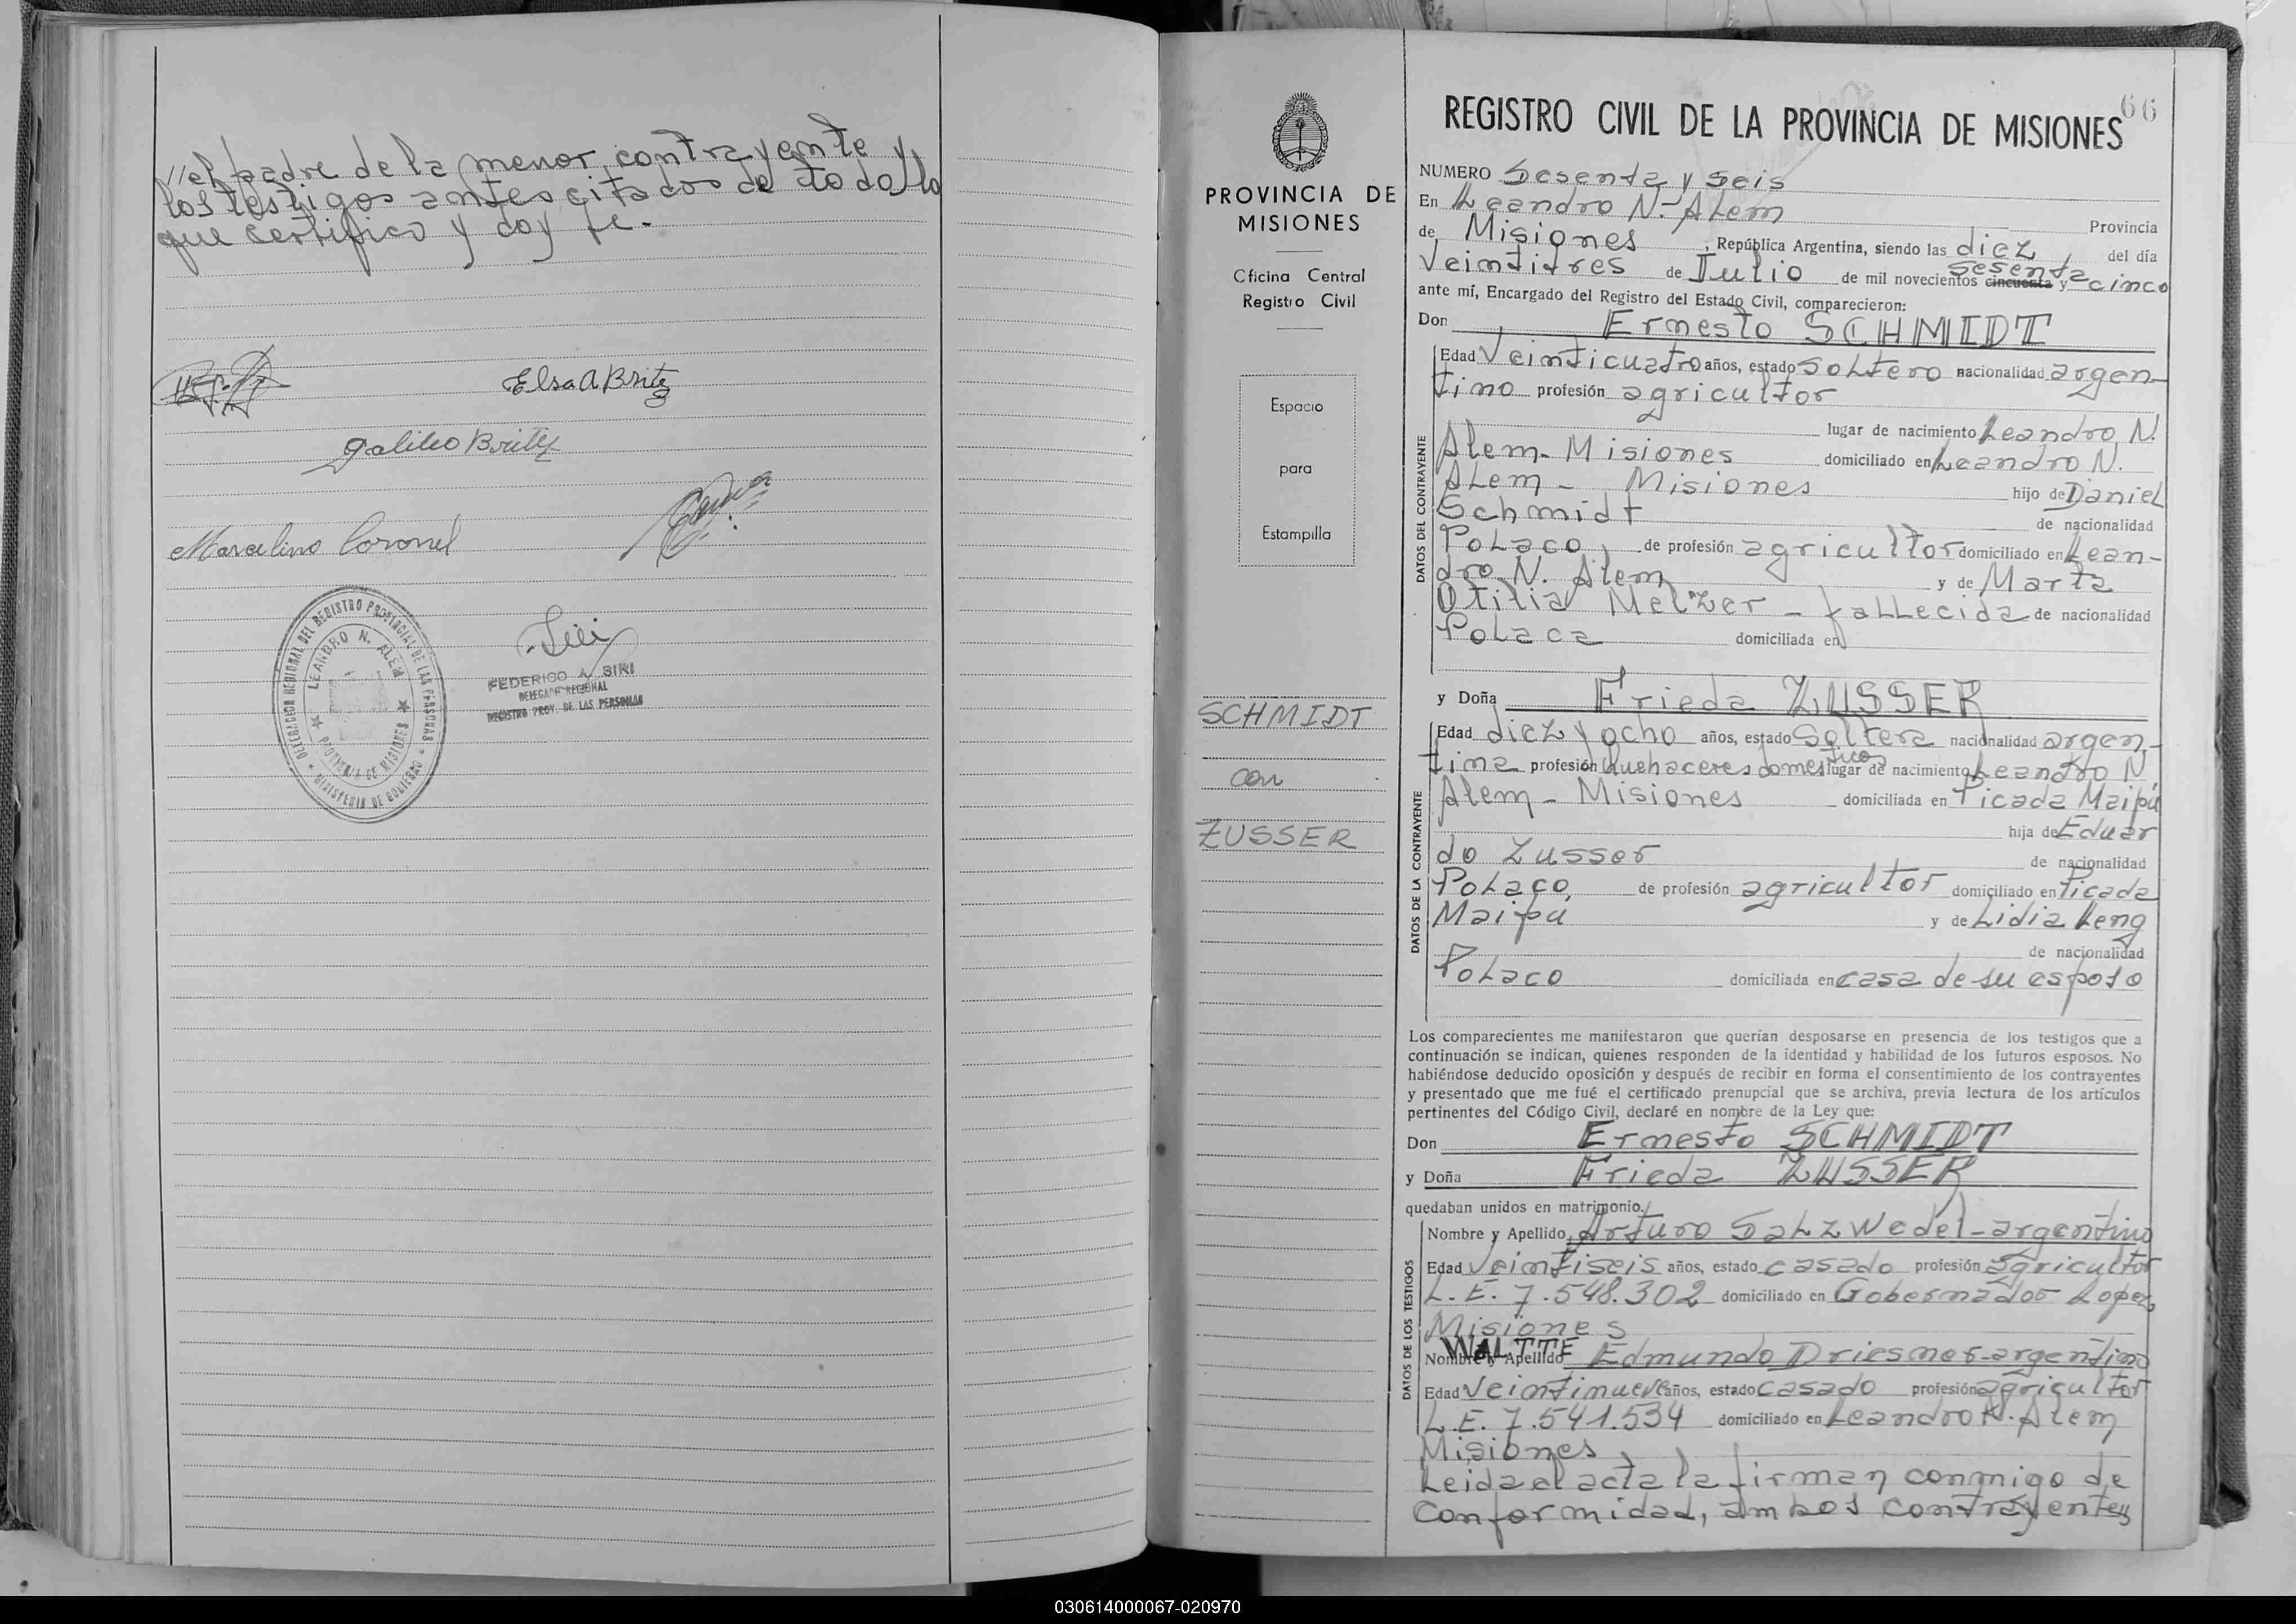 //el padre de la menor contrayente y
los testigos antes citados de todo lo
que certifico y doy fe.-
Elsa A Britez
Galileo Britez
Marcelino Coronel
DELEGACION REGIONAL DEL REGISTRO PROVINCIAL DE LAS PERSONAS
MINISTERIO DE GOBIERNO
LEANDRO N. ALEM
PROVINCIA DE MISIONES
FEDERICO A. SIRI
DELEGADO REGIONAL
REGISTRO PROV. DE LAS PERSONAS
PROVINCIA DE
MISIONES
Oficina Central
Registro Civil
Espacio
para
Estampilla
SCHMIDT
con
ZUSSER
66
REGISTRO CIVIL DE LA PROVINCIA DE MISIONES
NUMERO Sesenta y seis
En Leandro N. Alem Provincia
de Misiones, República Argentina, siendo las diez, del día
Veintitres de Julio de mil novecientos cincuenta sesenta y cinco
ante mí, Encargado del Registro del Estado Civil, comparecieron:
Don Ernesto SCHMIDT
DATOS DEL CONTRAYENTE
Edad Veinticuatro años, estado soltero nacionalidad argen-
tino profesión agricultor
lugar de nacimiento Leandro N.
Alem-Misiones domiciliado en Leandro N.
Alem - Misiones hijo de Daniel
Schmidt de nacionalidad
Polaco, de profesión agricultor domiciliado en Lean-
dro N. Alem y de Marta
Otilia Melzer - fallecida de nacionalidad
Polaca domiciliada en
y Doña Frieda ZUSSER
DATOS DE LA CONTRAYENTE
Edad diez y ocho años, estado soltera nacionalidad argen-
tina profesión Quehaceres domesticos lugar de nacimiento Leandro N
Alem - Misiones domiciliada en Picada Maipú
hija de Eduar
do Zusser de nacionalidad
Polaco, de profesión agricultor domiciliado en Picada
Maipú y de Lidia Leng
de nacionalidad
Polaco domiciliada en casa de su esposo
Los comparecientes me manifestaron que querían desposarse en presencia de los testigos que a
continuación se indican, quienes responden de la identidad y habilidad de los futuros esposos. No
habiéndose deducido oposición y después de recibir en forma el consentimiento de los contrayentes
y presentado que me fué el certificado prenupcial que se archiva, previa lectura de los artículos
pertinentes del Código Civil, declaré en nombre de la Ley que:
Don Ernesto SCHMIDT
y Doña Frieda ZUSSER
quedaban unidos en matrimonio.
DATOS DE LOS TESTIGOS
Nombre y Apellido Arturo Salzwedel-argentino
Edad Veintiseis años, estado casado profesión agricultor
L.E. 7.548.302 domiciliado en Gobernador Lopez,
Misiones
Nombre y Apellido WALTTE Edmundo Driesner-argentino
Edad Veintinueve años, estado casado profesión agricultor
L.E. 7.541.534 domiciliado en Leandro N. Alem
Misiones
Leida el acta la firman conmigo de
Conformidad, ambos contrayentes
030614000067-020970